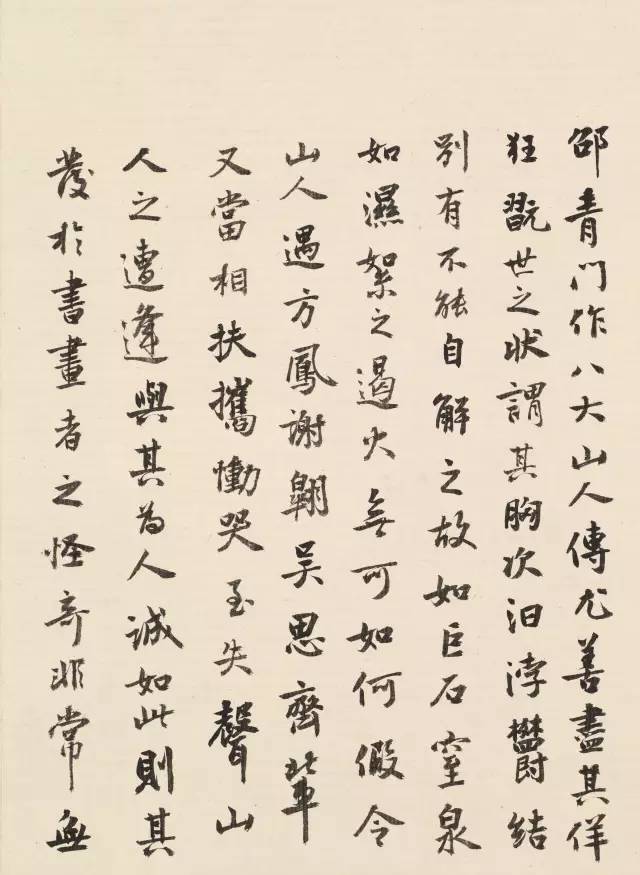 邵青門作八大山人傳尤善盡其佯
狂翫世之狀謂其胸次汩浡鬱結
別有不能自解之故如巨石窒泉
如濕絮之遏火無可如何假令
山人遇方鳳謝翱吴思齊輩
又當相扶攜慟哭至失聲山
人之遭逢與其為人誠如此則其
發於書畫者之怪奇非常無